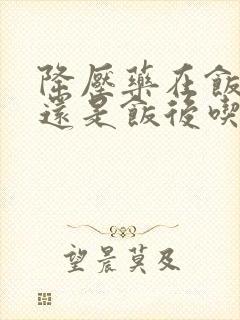 降壓藥在飯
還是飯後喫
望晨莫及